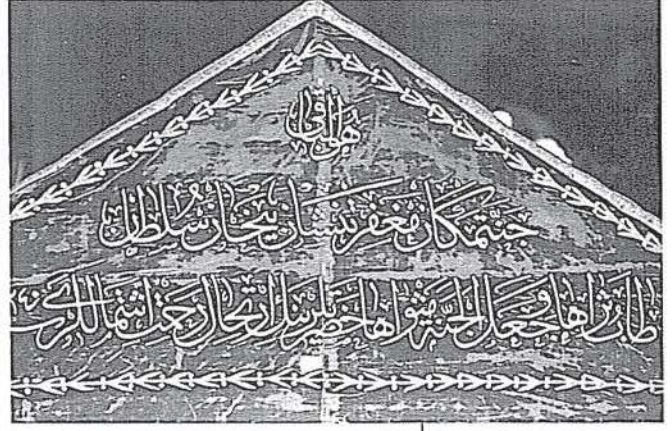 هو الباقي
جنتمكان مغفرتنشان بيخان سلطان
طاب ثراها وجعل الجنة مثواها حضرتلرينك ارتحال رحمت اشتماللري